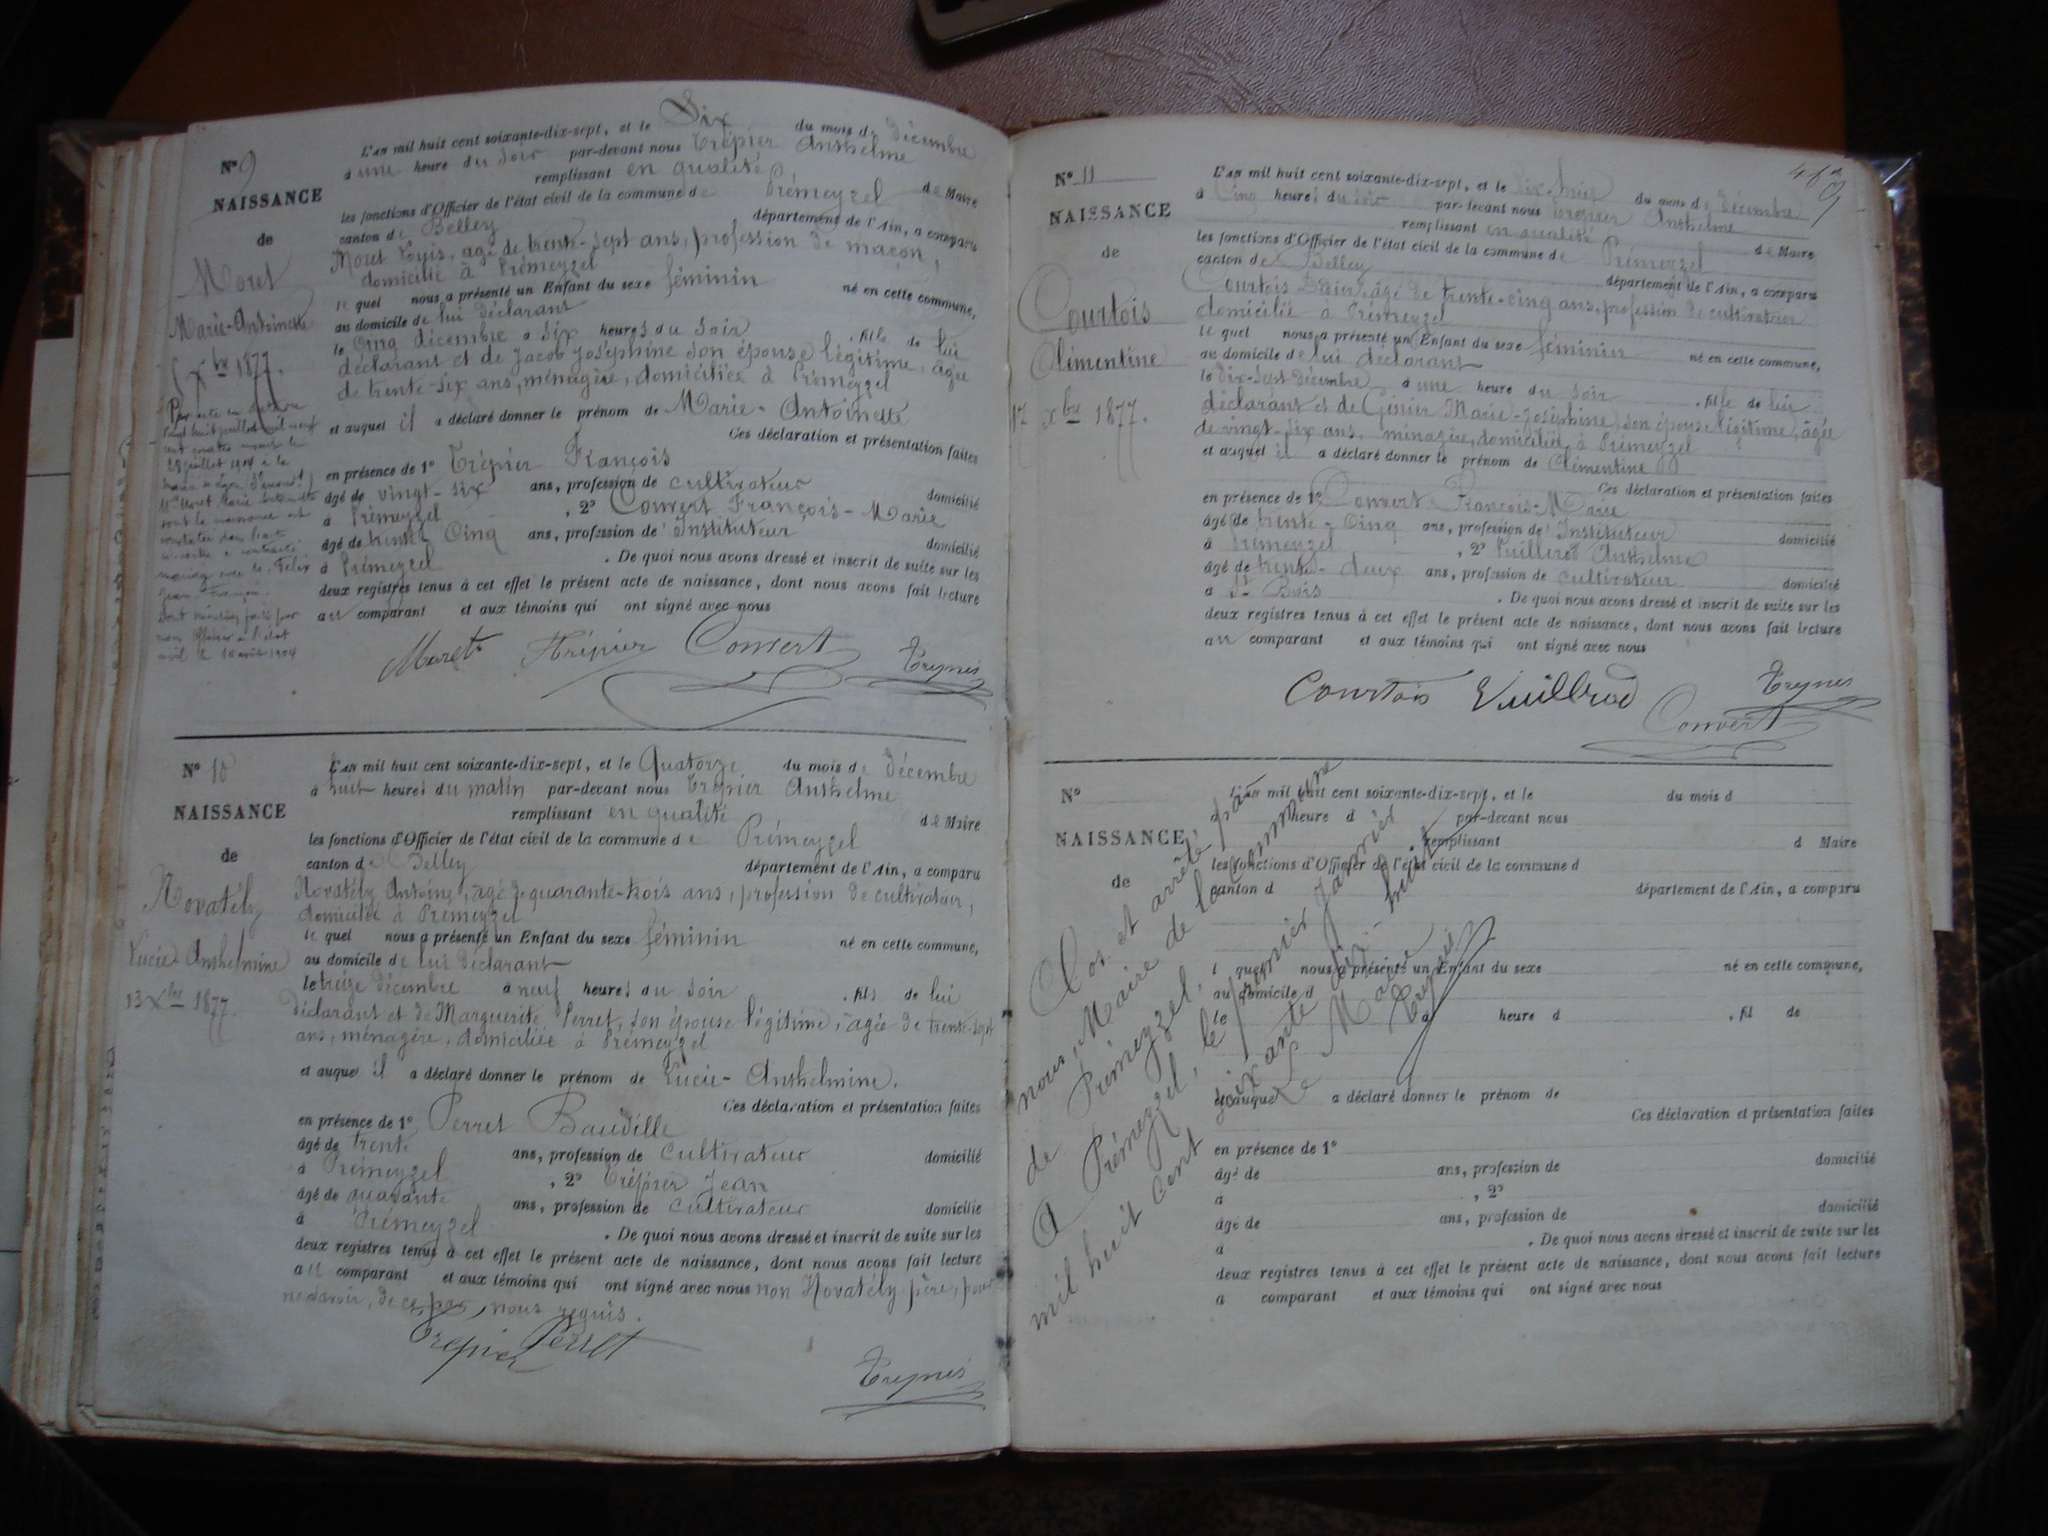 N° 9
NAISSANCE
de
Moret
Marie-Antoinette
5 Xbre 1877.
L'an mil huit cent soixante-dix-sept, et le Six du mois de décembre
à une heure du soir par-devant nous Trépier Anthelme
remplissant en qualité de Maire
les fonctions d'Officier de l'état civil de la commune de Prémeyzel
canton de Belley département de l'Ain, a comparu
Moret Louis, âgé de trente-sept ans, profession de maçon,
domicilié à Prémeyzel
lequel nous a présenté un Enfant du sexe féminin né en cette commune,
au domicile de lui déclarant
le Cinq décembre à six heures du soir, fille de lui
déclarant et de Jacob Joséphine son épouse légitime, âgée
de trente-six ans, ménagère, domiciliée à Prémeyzel
et auquel il a déclaré donner le prénom de Marie-Antoinette
Ces déclaration et présentation faites
en présence de 1° Trépier François
âgé de vingt-six ans, profession de cultivateur domicilié
à Prémeyzel, 2° Convert François-Marie
âgé de trente cinq ans, profession d'Instituteur domicilié
à Prémeyzel. De quoi nous avons dressé et inscrit de suite sur les
deux registres tenus à cet effet le présent acte de naissance, dont nous avons fait lecture
au comparant et aux témoins qui ont signé avec nous
Moret Trépier Convert Trépier
N° 10
NAISSANCE
de
Novatély
Lucie-Anthelmine
13 Xbre 1877.
L'an mil huit cent soixante-dix-sept, et le Quatorze du mois de décembre
à huit heures du matin par-devant nous Trépier Anthelme
remplissant en qualité de Maire
les fonctions d'Officier de l'état civil de la commune de Prémeyzel
canton de Belley département de l'Ain, a comparu
Novatély Antoine, âgé de quarante-trois ans, profession de cultivateur,
domicilié à Prémeyzel
lequel nous a présenté un Enfant du sexe féminin né en cette commune,
au domicile de lui déclarant
le treize décembre à neuf heures du soir, fils de lui
déclarant et de Marguerite Perret, son épouse légitime, âgée de trente-sept
ans, ménagère, domiciliée à Prémeyzel
et auquel il a déclaré donner le prénom de Lucie-Anthelmine.
Ces déclaration et présentation faites
en présence de 1° Perret Baudille
âgé de trente ans, profession de cultivateur domicilié
à Prémeyzel, 2° Trépier Jean
âgé de quarante ans, profession de cultivateur domicilié
à Prémeyzel. De quoi nous avons dressé et inscrit de suite sur les
deux registres tenus à cet effet le présent acte de naissance, dont nous avons fait lecture
au comparant et aux témoins qui ont signé avec nous non Novatély père, pour
ne savoir, de ce par nous requis.
Trépier Perret
Trépier
N° 11
NAISSANCE
de
Courtois
Clémentine
17 Xbre 1877.
L'an mil huit cent soixante-dix-sept, et le dix-huit du mois de décembre
à Cinq heures du soir par-devant nous Trépier Anthelme
remplissant en qualité de Maire
les fonctions d'Officier de l'état civil de la commune de Prémeyzel
canton de Belley département de l'Ain, a comparu
Courtois âgé de trente-cinq ans, profession de cultivateur
domicilié à Prémeyzel
lequel nous a présenté un Enfant du sexe féminin né en cette commune,
au domicile de lui déclarant
le dix-sept décembre à une heure du soir, fille de lui
déclarant et de Ginier Marie-Joséphine, son épouse légitime, âgée
de vingt-six ans, ménagère, domiciliée à Prémeyzel
et auquel il a déclaré donner le prénom de Clémentine
Ces déclaration et présentation faites
en présence de 1° Convert François-Marie
âgé de trente-cinq ans, profession d'Instituteur domicilié
à Prémeyzel, 2° Vuillerod Anthelme
âgé de trente-deux ans, profession de cultivateur domicilié
à St Bois. De quoi nous avons dressé et inscrit de suite sur les
deux registres tenus à cet effet le présent acte de naissance, dont nous avons fait lecture
au comparant et aux témoins qui ont signé avec nous
Courtois Vuillerod Trépier
Convert
N°
NAISSANCE
de
L'an mil huit cent soixante-dix-sept, et le du mois d
à heure d par-devant nous
remplissant d Maire
les fonctions d'Officier de l'état civil de la commune d
canton d département de l'Ain, a comparu
l quel nous a présenté un Enfant du sexe né en cette commune,
au domicile d
le à heure d , fil de
et auquel a déclaré donner le prénom de
Ces déclaration et présentation faites
en présence de 1°
âgé de ans, profession de domicilié
à , 2°
âgé de ans, profession de domicilié
à . De quoi nous avons dressé et inscrit de suite sur les
deux registres tenus à cet effet le présent acte de naissance, dont nous avons fait lecture
a comparant et aux témoins qui ont signé avec nous
Clos et arrêté par
nous, Maire de la Commune
de Prémeyzel.
A Prémeyzel, le premier Janvier
mil huit cent soixante dix-huit
Le Maire
Trépier